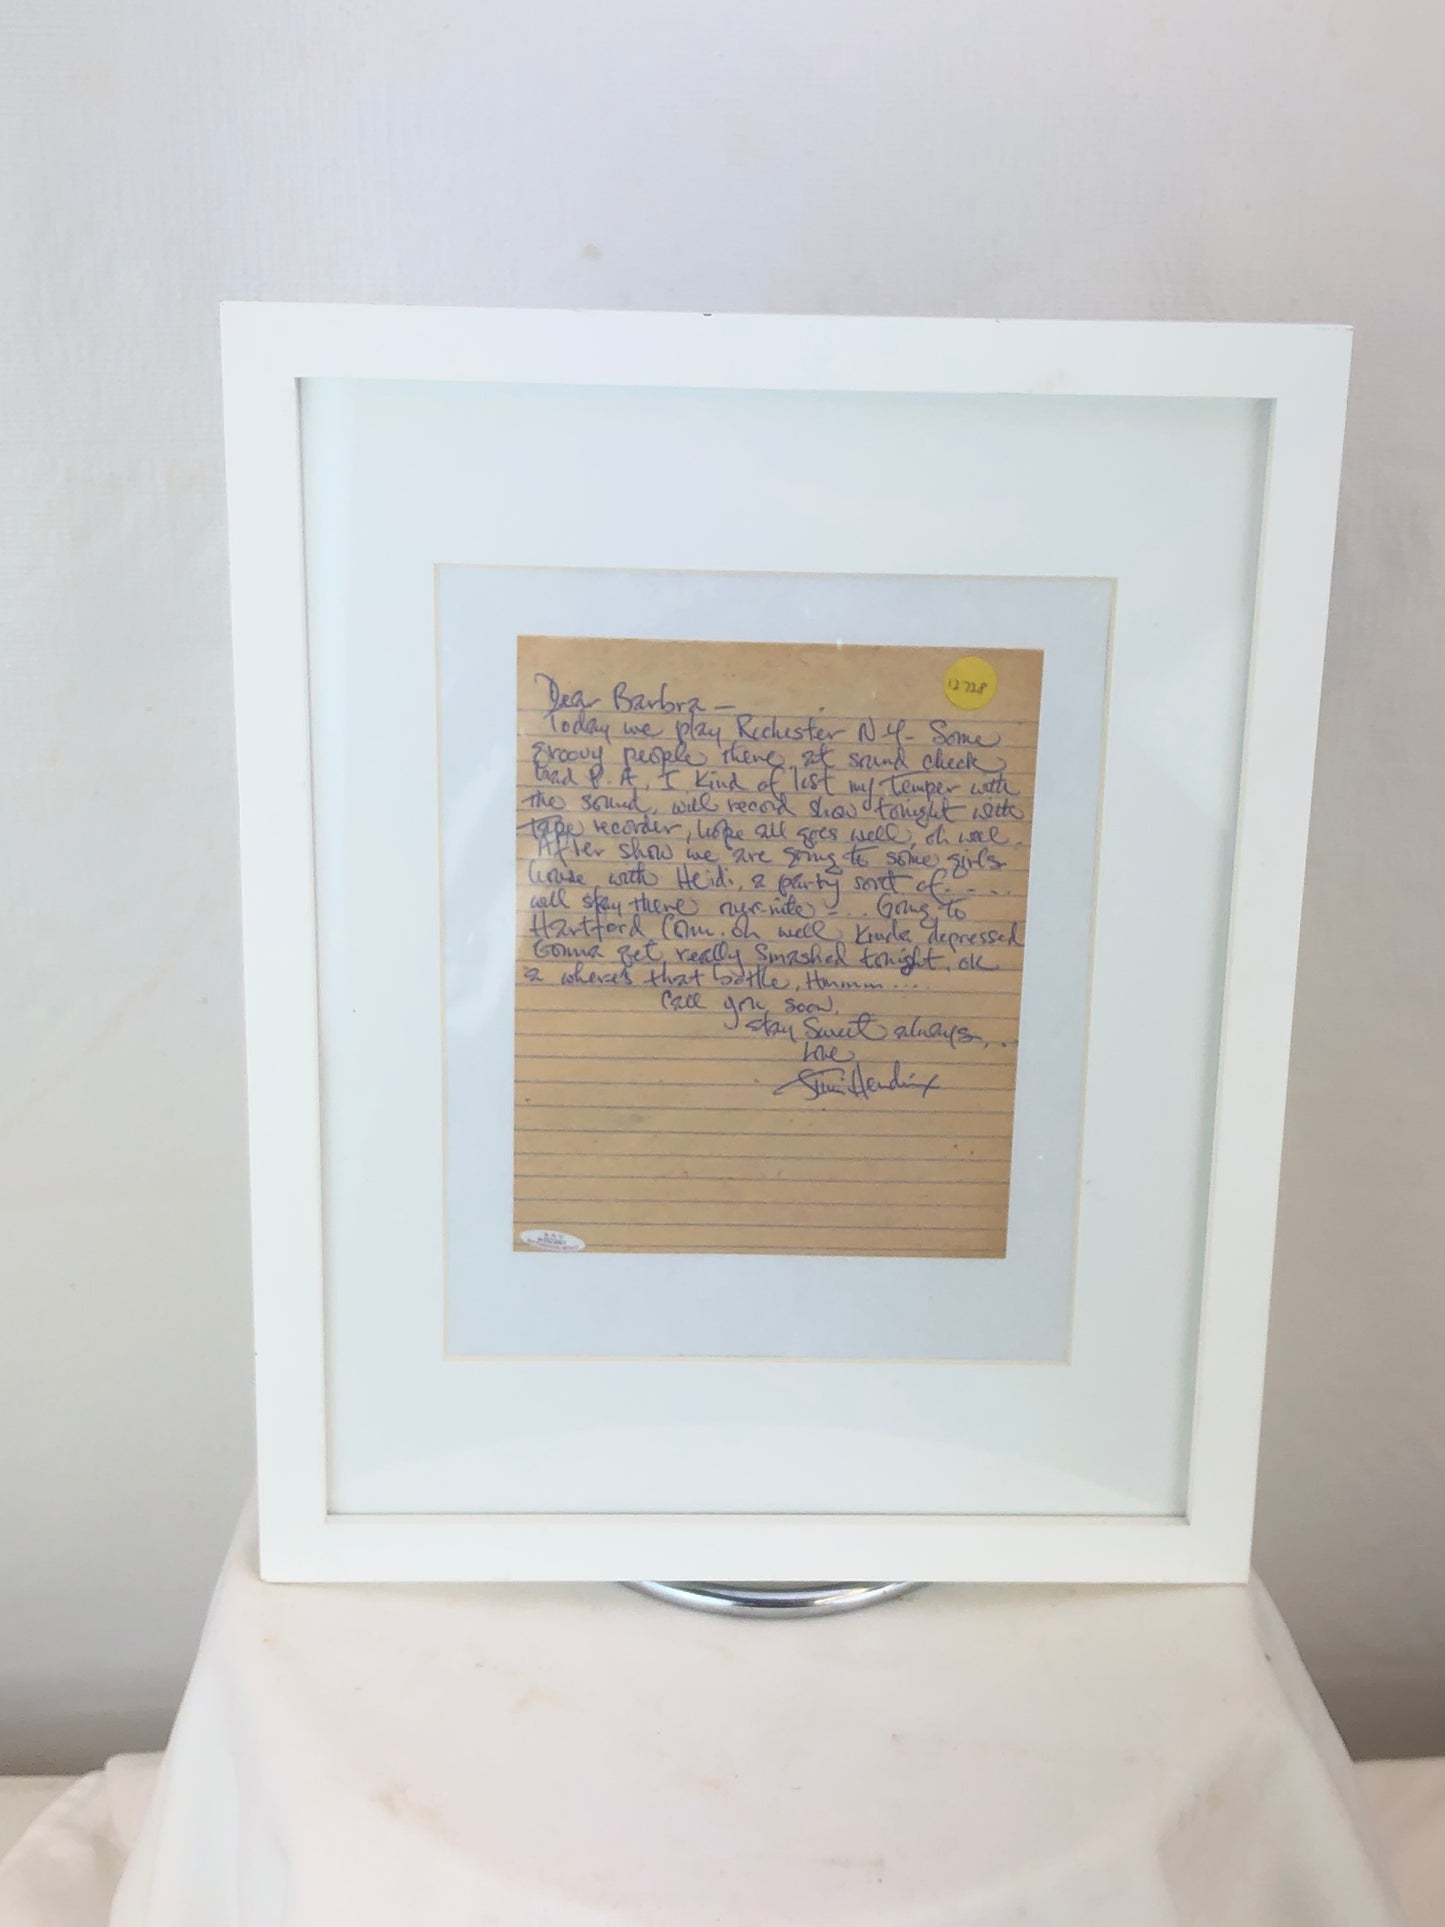 12728
Dear Barbra —
Today we play Rochester N.Y- Some
groovy people there, at sound check,
bad P.A, I kind of lost my temper with
the sound, will record show tonight with
tape recorder, hope all goes well, oh well.
After show we are going to some girls
house with Heidi, a party sort of....
will stay there over-nite -... Going to
Hartford Conn. oh well, Kinda depressed
Gonna get really Smashed tonight, ok
a where's that bottle, Hmmmm ....
Call you soon,
stay Sweet always, ..
Love
Jimi Hendrix